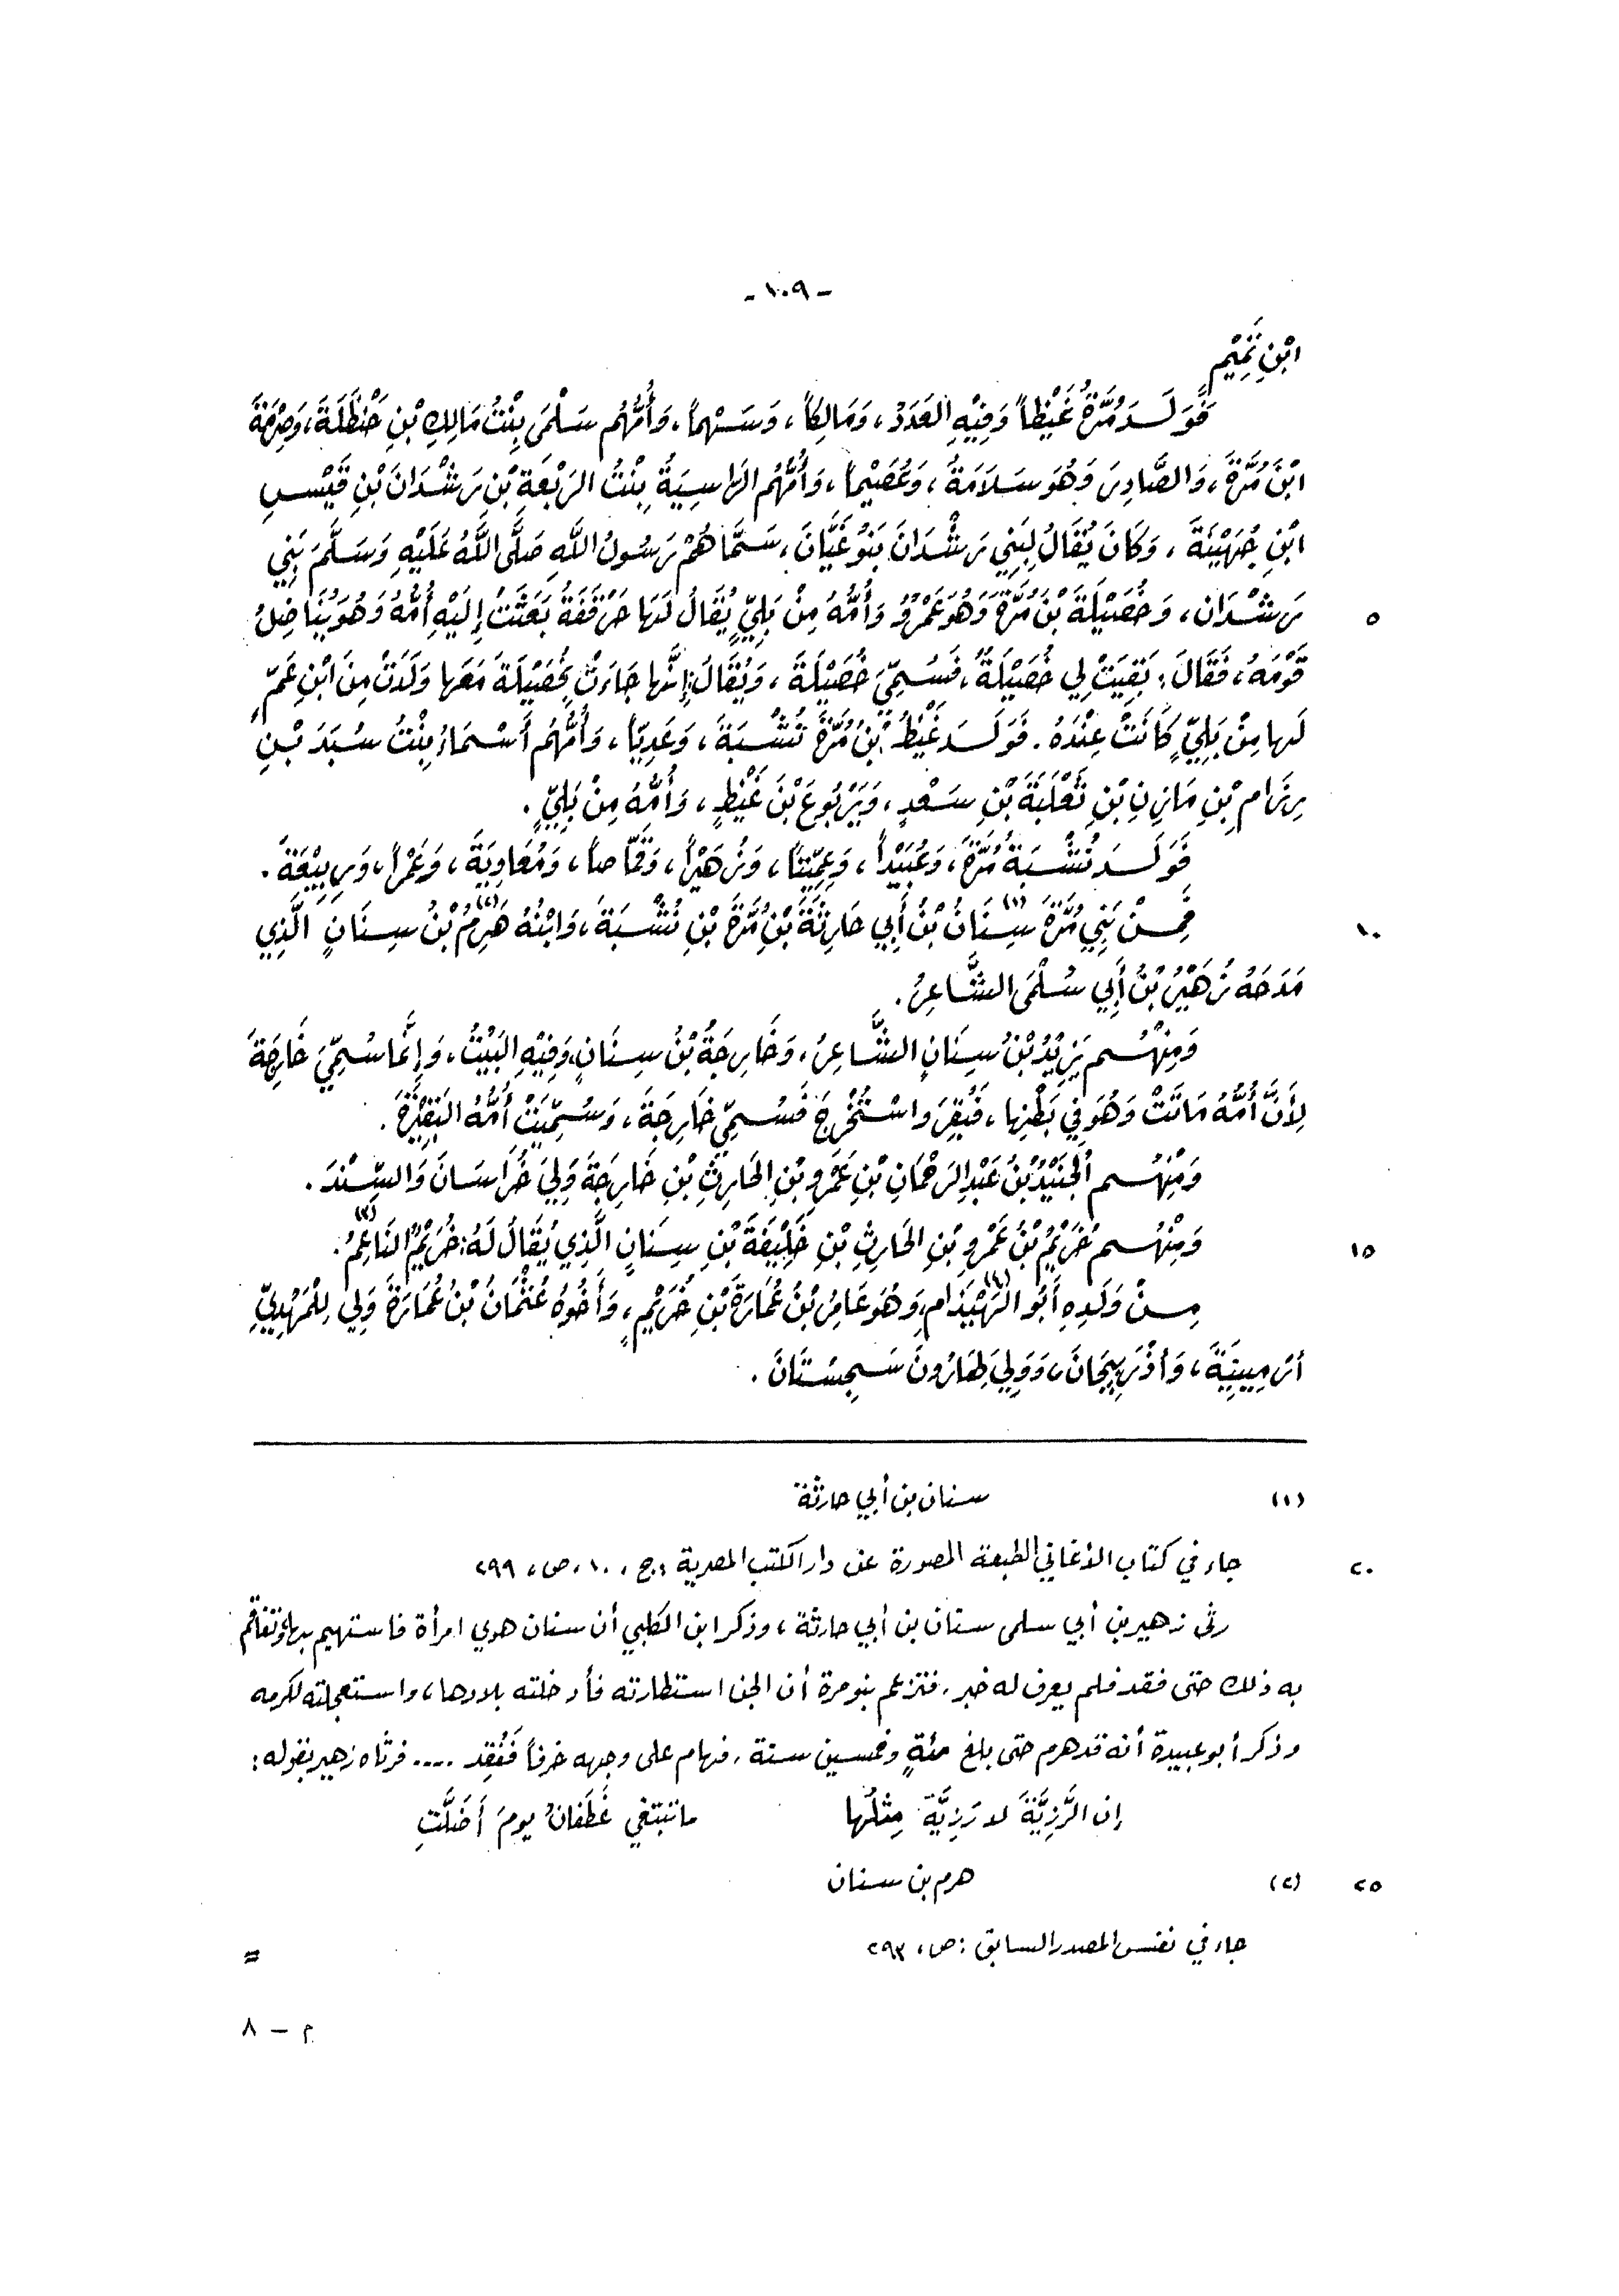 - ١٠٩ -
ابْنِ تَمِيْمٍ
فَوَلَدَ مُرَّةُ غَيْظاً وَفِيْهِ العَدَدُ، وَمَالِكاً، وَسَهْماً، وَأُمُّهُم سَلْمَى بِنْتُ مَالِكِ بْنِ حَنْظَلَةَ، وَصِرْمَةَ
ابْنَ مُرَّةَ، وَالصَّادِرَ وَهُوَ سَلَامَةُ، وَعُصَيْماً، وَأُمُّهُم الرَاسِيَةُ بِنْتُ الرَبْعَةِ بْنِ رَشْدَانَ بْنِ قَيْسِ
ابْنِ جُهَيْنَةَ، وَكَانَ يُقَالُ لِبَنِي رَشْدَانَ بَنُو غَيَّانَ، سَمَّاهُمْ رَسُولُ اللَّهِ صَلَّى اللَّهُ عَلَيْهِ وَسَلَّمَ بَنِي
رَشْدَان، وَخُصَيْلَةَ بْنَ مُرَّةَ وَهُوَ عَمْرٌو وَأُمُّهُ مِنْ بَلِيٍّ يُقَالُ لَهَا حَرْقَفَةُ بَعَثَتْ إِلَيْهِ أُمُّهُ وَهُوَ يُنَاضِلُ ٥
قَوْمَهُ، فَقَالَ: بَقِيَتْ لِي خُصَيْلَةٌ، فَسُمِّيَ خُصَيْلَةَ، وَيُقَالُ: إِنَّها جَاءَتْ بِخُصَيْلَةَ مَعَها وَلَدَتْ مِنَ ابْنِ عَمٍّ
لَها مِنْ بَلِيٍّ كَانَتْ عِنْدَهُ. فَوَلَدَ غَيْظُ بْنُ مُرَّةَ نُشْبَةَ، وَعَدِيّاً، وَأُمُّهُم أَسْمَاءُ بِنْتُ سُبَدَ بْنِ
رِزَامِ بْنِ مَازِنِ بْنِ ثَعْلَبَةَ بْنِ سَعْدٍ، وَيَرْبُوعَ بْنَ غَيْظٍ، وَأُمُّهُ مِنْ بَلِيٍّ.
فَوَلَدَ نُشْبَةُ مُرَّةَ، وَعُبَيْداً، وَعِمِّيْتاً، وَزُهَيْراً، وَقَمَّاصاً، وَمُعَاوِيَةَ، وَعَمْراً، وَرَبِيْعَةَ.
فَمِنْ بَنِي مُرَّةَ سِنَانُ(١) بْنُ أَبِي حَارِثَةَ بْنِ مُرَّةَ بْنِ نُشْبَةَ، وَابْنُهُ هَرِمُ(٢) بْنُ سِنَانٍ الَّذِي ١٠
مَدَحَهُ زُهَيْرُ بْنُ أَبِي سُلْمَى الشَّاعِرُ.
وَمِنْهُم يَزِيْدُ بْنُ سِنَانٍ الشَّاعِرُ، وَخَارِجَةُ بْنُ سِنَانٍ، وَفِيْهِ البَيْتُ، وَإِنَّمَا سُمِّيَ خَارِجَةَ
لِأَنَّ أُمَّهُ مَاتَتْ وَهُوَ فِي بَطْنِها، فَبُقِرَ واسْتُخْرِجَ فَسُمِّيَ خَارِجَةَ، وَسُمِّيَتْ أُمُّهُ البَقِيْرَةَ.
وَمِنْهُم الجُنَيْدُ بْنُ عَبْدِ الرَحْمَانِ بْنِ عَمْرِو بْنِ الحَارِثِ بْنِ خَارِجَةَ وَلِيَ خُرَاسَانَ وَالسِّنْدَ.
وَمِنْهُم خُرَيْمُ بْنُ عَمْرِو بْنِ الحَارِثِ بْنِ خَلِيْفَةَ بْنِ سِنَانٍ الَّذِي يُقَالُ لَهُ: خُرَيْمُ النَاعِمُ(٣). ١٥
مِنْ وَلَدِهِ أَبُو الهَيْذَامِ(٤)، وَهُوَ عَامِرُ بْنُ عُمَارَةَ بْنِ خُرَيْمٍ، وَأَخُوهُ عُثْمَانُ بْنُ عُمَارَةَ وَلِي لِلْمَهْدِيِّ
أَرْمِينِيَّةَ، وَأَذْرَبِيجَانَ، وَوَلِيَ لِهَارُونَ سَجِسْتَانَ.
(١) سنان بن أبي حارثة
جاء في كتاب الأغاني الطبعة المصورة عن دار الكتب المصرية : ج ، ١٠ ، ص ، ٢٩٩ ٢٠
رثى زهير بن أبي سلمى سنان بن أبي حارثة ، وذكر ابن الكلبي أن سنان هوي امرأة فاستهيم بها وتفاقم
به ذلك حتى فقد فلم يعرف له خبر ، فتزعم بنو مرة أن الجن استطارته فأدخلته بلادها ، واستعجلته لكرمه
وذكر أبو عبيدة أنه قد هرم حتى بلغ مئةٍ وخمسين سنة ، فهام على وجهه خرفاً فَفُقِد .... فرثاه زهير بقوله :
إن الرَّزِيَّةَ لا رَزِيَّةَ مِثلُها ما تبتغي غَطَفانُ يومَ أَضَلَّتِ
(٢) هرم بن سنان ٢٥
جاء في نفس المصدر السابق : ص ، ٢٩٣
=
م - ٨